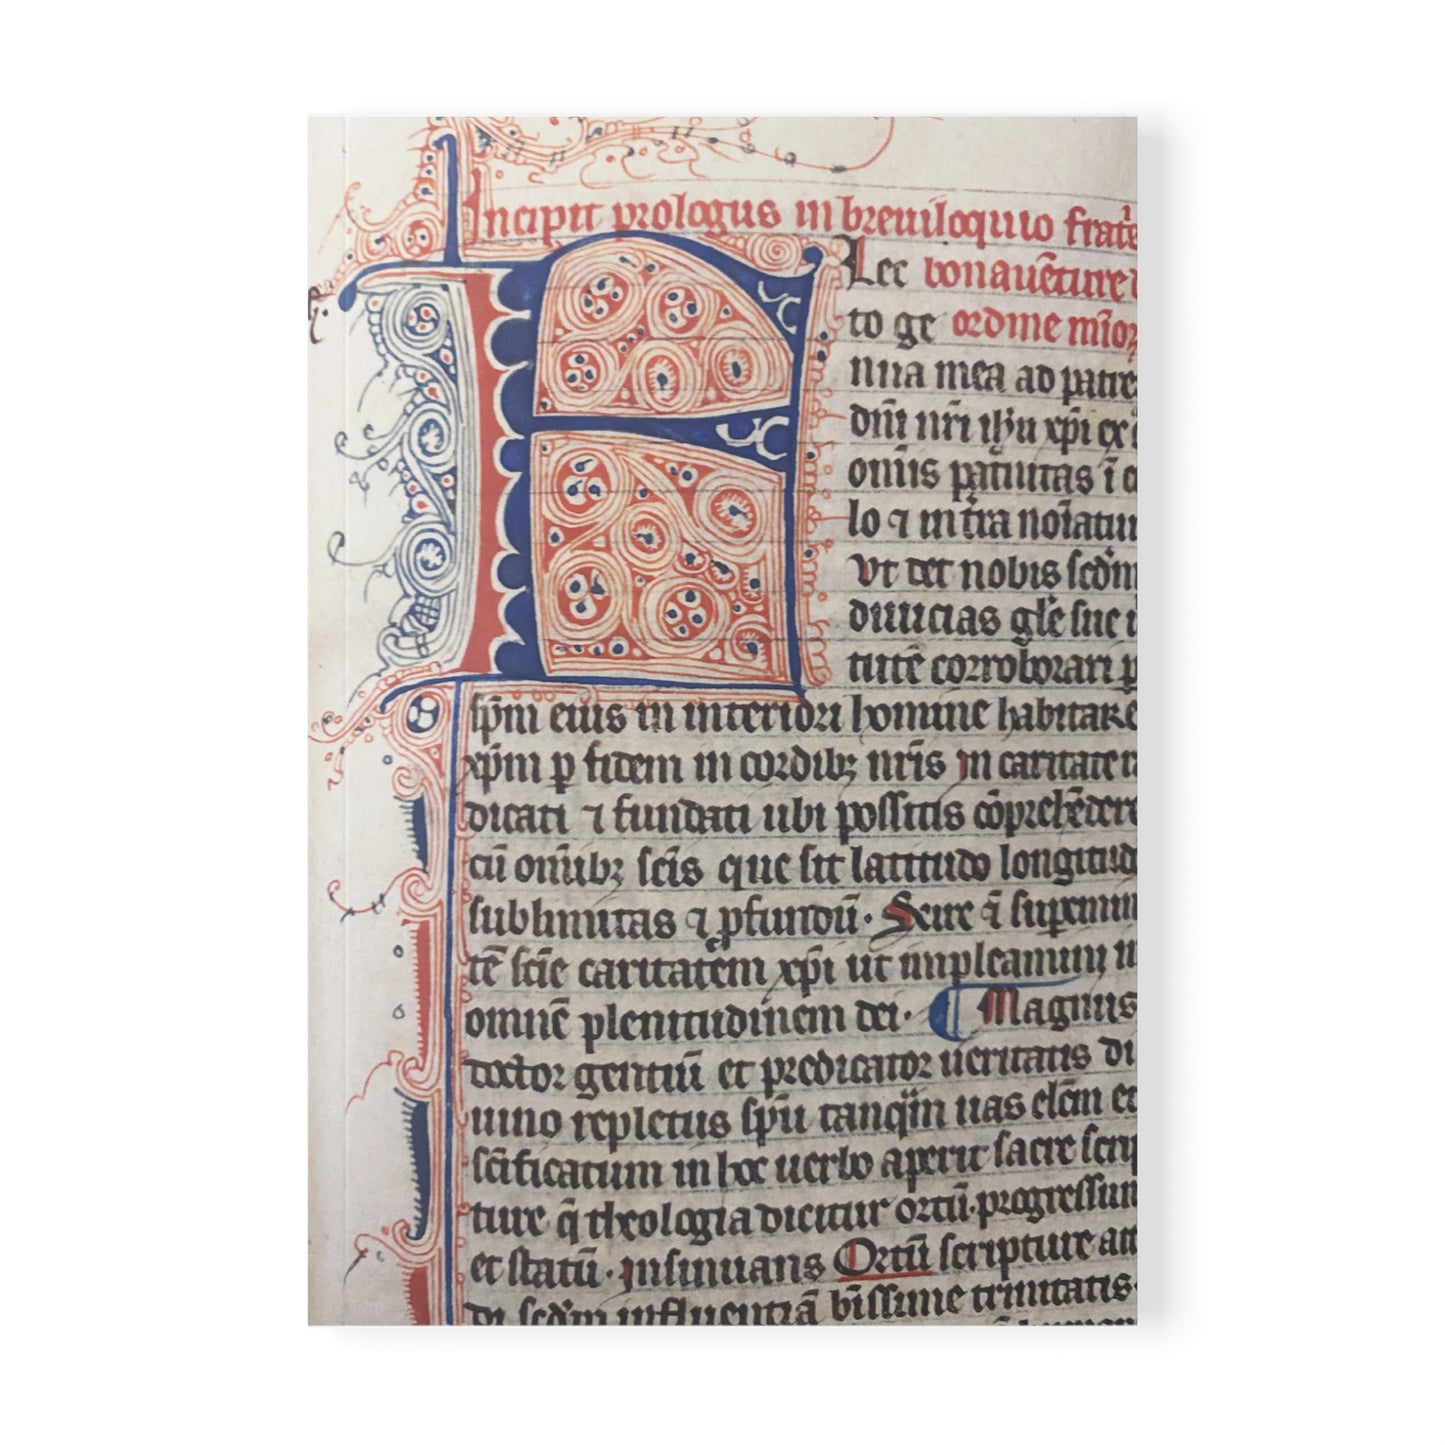 Incipit prologus in breuiloquio frat̃
Lec bonauẽture
to ge ordine mi̅or
nua mea ad patre
dñi nr̃i ihũ xp̃i ex
omĩs pat̃nitas ĩ c
lo ⁊ in t̃ra noĩatur
vt det nobis scd̃m
diuicias glẽ sue
tutẽ corroborari p
sp̃m eius in interiori homine habitare
xp̃m p fidem in cordibꝫ nr̃is in caritate
dicati ⁊ fundati ubi possitis cõprehẽdere
cũ om̃ibꝫ scĩs que sit latitudo longitud
sublimitas ⁊ ꝓfundũ. Scire ⁊̃ supemin
tẽ scĩe caritatem xp̃i ut impleamini in
omnẽ plenitudinem dei. Magnus
doctor gentiũ et predicator ueritatis di
uino repletus sp̃u tanq̃m uas elc̃m et
sc̃ificatum in hoc uerbo aperit sacre scrip
ture q̃ theologia dicitur ortũ. progressum
et statũ. insinuans Ortũ scripture att
di scd̃m influentiã bt̃issime trinitatis.